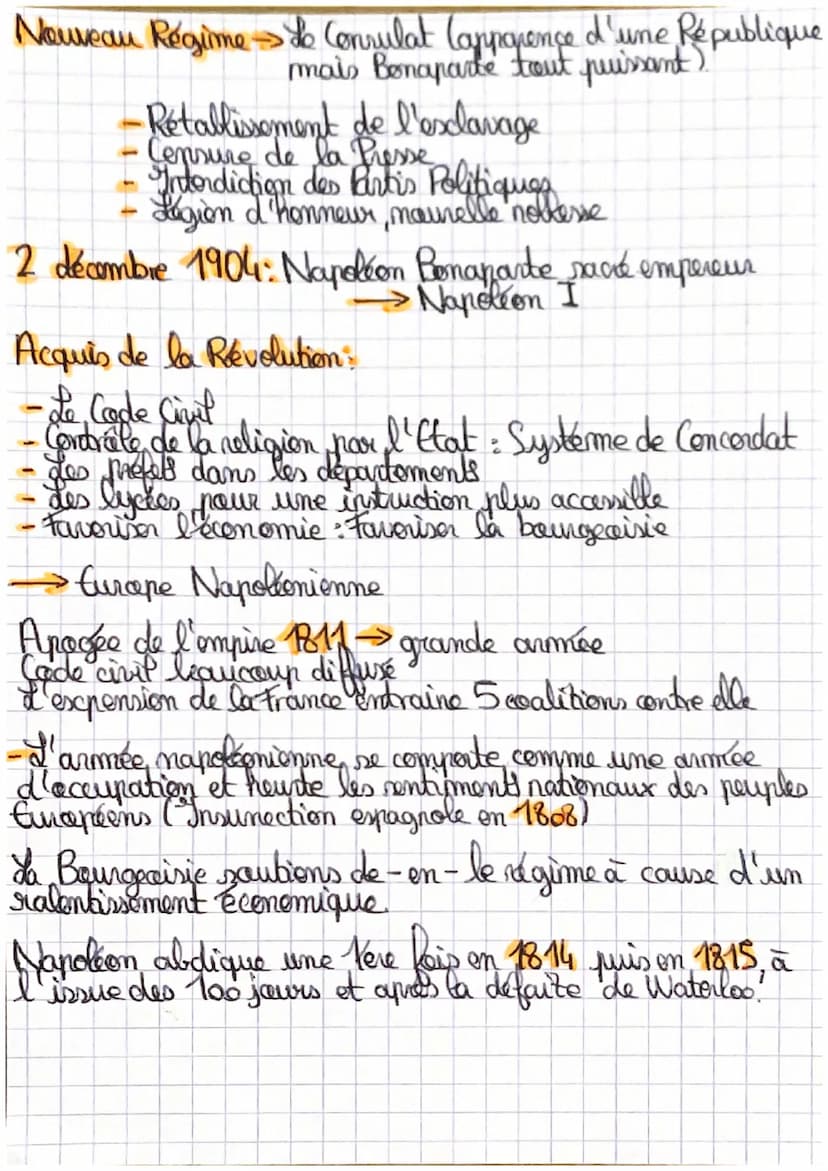 Nouveau Régime → Le Consulat (apparence d'une République
mais Bonaparte tout puissant).
- Rétablissement de l'esclavage
- Censure de la Presse
- Interdiction des Partis Politiques
- Légion d'honneur, nouvelle noblesse
2 décembre 1904: Napoléon Bonaparte sacré empereur
→ Napoléon I
Acquis de la Révolution:
- Le Code Civil
- Contrôle de la religion par l'Etat : Système de Concordat
- des préfets dans les départements
- des lycées pour une intruction plus accessible
- Favoriser l'économie : Favoriser la bourgeoisie
→ Europe Napoléonienne
Apogée de l'empire 1811 → grande armée
Code civil beaucoup diffusé
L'expension de la France entraine 5 coalitions contre elle
- L'armée napoléonienne se comporte comme une armée
d'occupation et heurte les sentiments nationaux des peuples
Européens (Insurrection espagnole en 1808)
La Bourgeoisie soutiens de-en- le régime à cause d'un
ralentissement économique.
Napoléon abdique une 1ere fois en 1814 puis en 1815, à
l'issue des 100 jours et après la défaite de Waterloo.